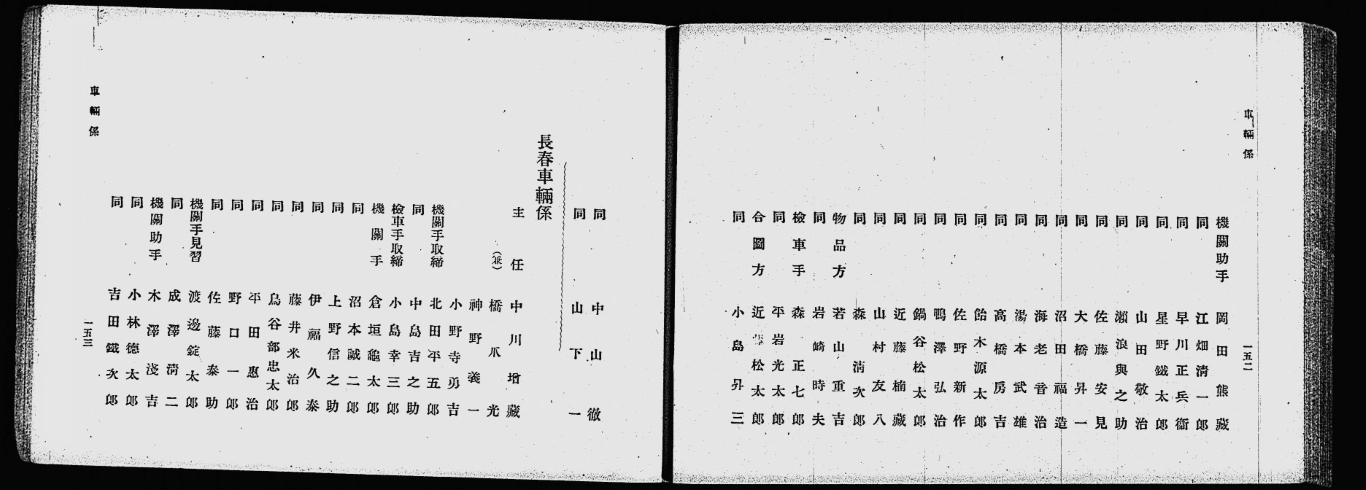 車輛係
機關助手 岡田熊藏
同 江畑清一郎
同 早川正兵衞
同 星野鐵太郎
同 山田敬治
同 瀨浪與之助
同 佐藤安見
同 大橋昇一
同 沼田福造
同 海老音治
同 湯本武雄
同 高橋房吉
同 飴木源太郎
同 佐野新作
同 鴨澤弘治
同 鍋谷松太郎
同 近藤楠藏
同 山村友八
同 森淸次郎
物品方 若山重吉
同 岩崎時夫
檢車手 森正七郎
同 平岩光太郎
合圖方 近藤松太郎
同 小島昇三
一五二
同 中山徹
同 山下一
長春車輛係
主任 中川增藏
(兼) 橋爪光
神野義一
小野寺勇吉
機關手取締 北田平五郎
同 中島吉之助
檢車手取締 小島幸三郎
機關手 倉垣龜太郎
同 沼本誠二郎
同 上野信之助
同 伊福久泰
同 藤井米治郎
同 鳥谷部忠太郎
同 平田惠治
同 野口一郎
同 佐藤泰助
機關手見習 渡邊錠太郎
同 成澤淸二
機關助手 木澤淺吉
同 小林德太郎
同 吉田鐵次郎
車輛係
一五三